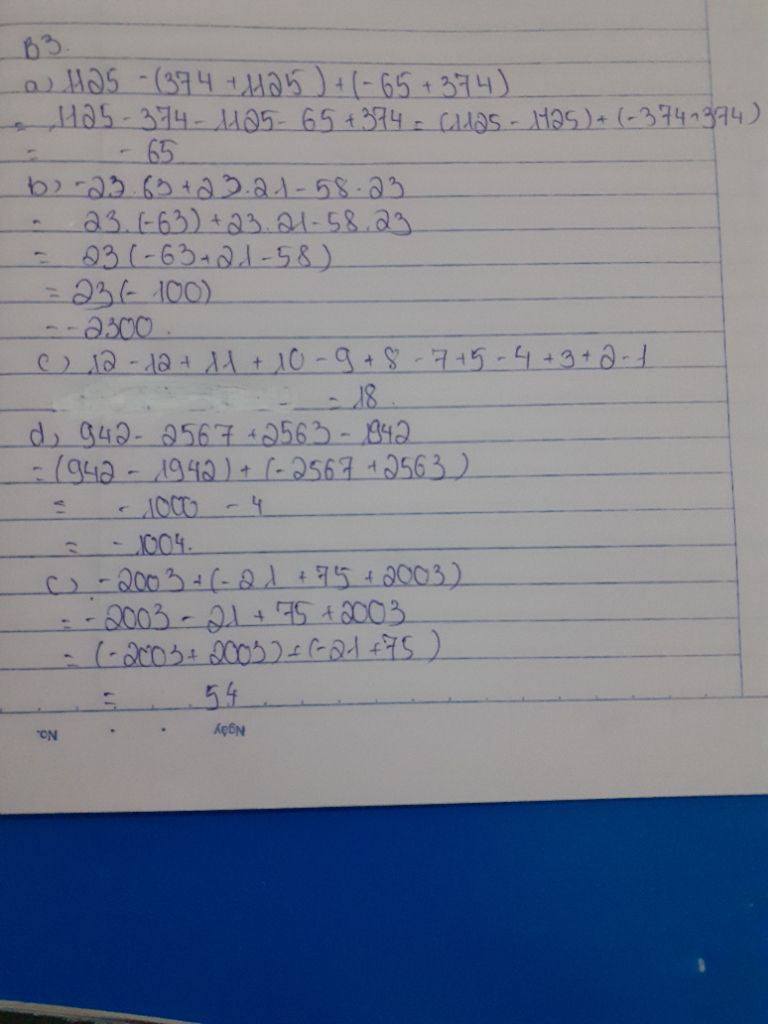 B3.
a) 1125 - (374 + 1125) + (-65 + 374)
= 1125 - 374 - 1125 - 65 + 374 = (1125 - 1125) + (-374 + 374)
= - 65
b) -23.63 + 23.21 - 58.23
= 23.(-63) + 23.21 - 58.23
= 23(-63 + 21 - 58)
= 23(- 100)
= -2300.
c) 12 - 12 + 11 + 10 - 9 + 8 - 7 + 5 - 4 + 3 + 2 - 1
= 18.
d) 942 - 2567 + 2563 - 1942
= (942 - 1942) + (-2567 + 2563)
= - 1000 - 4
= - 1004.
c) -2003 + (-21 + 75 + 2003)
= -2003 - 21 + 75 + 2003
= (-2003 + 2003) + (-21 + 75)
= 54
No. Ngày